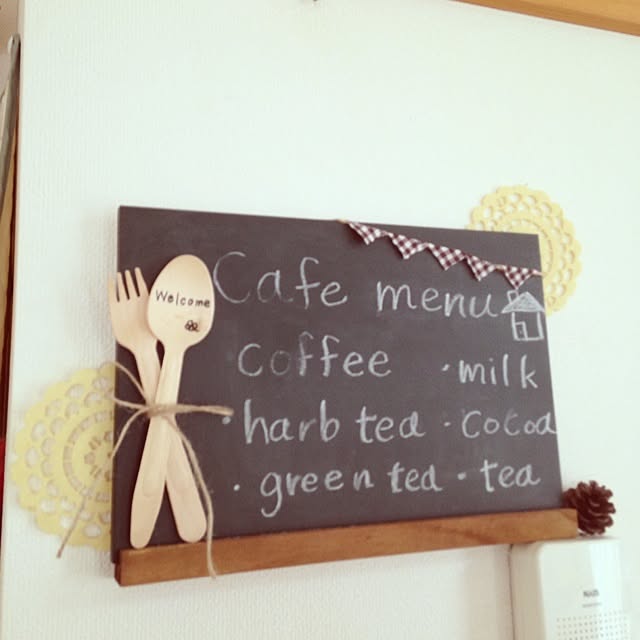 Welcome
Cafe menu
coffee ・milk
・harb tea ・cocoa
・green tea ・tea